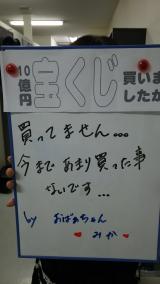 10億円 宝くじ 買いま
したか
買ってません...
今まであまり買った事
ないです...
by おばぁちゃん
みか